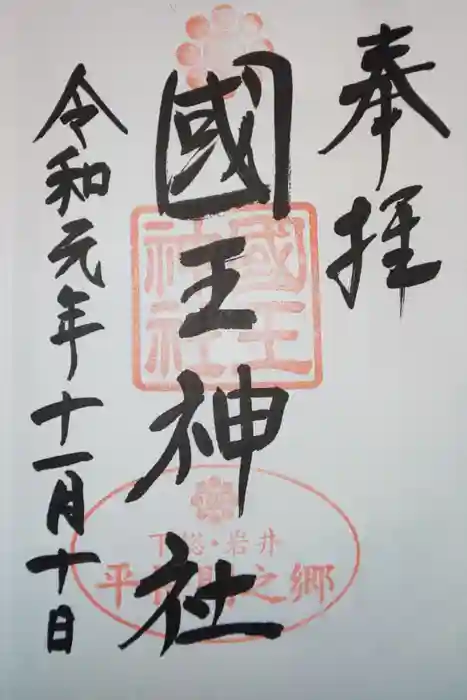 奉拝
國王神社
國王神社
下総・岩井
平将門之郷
令和元年十一月十日